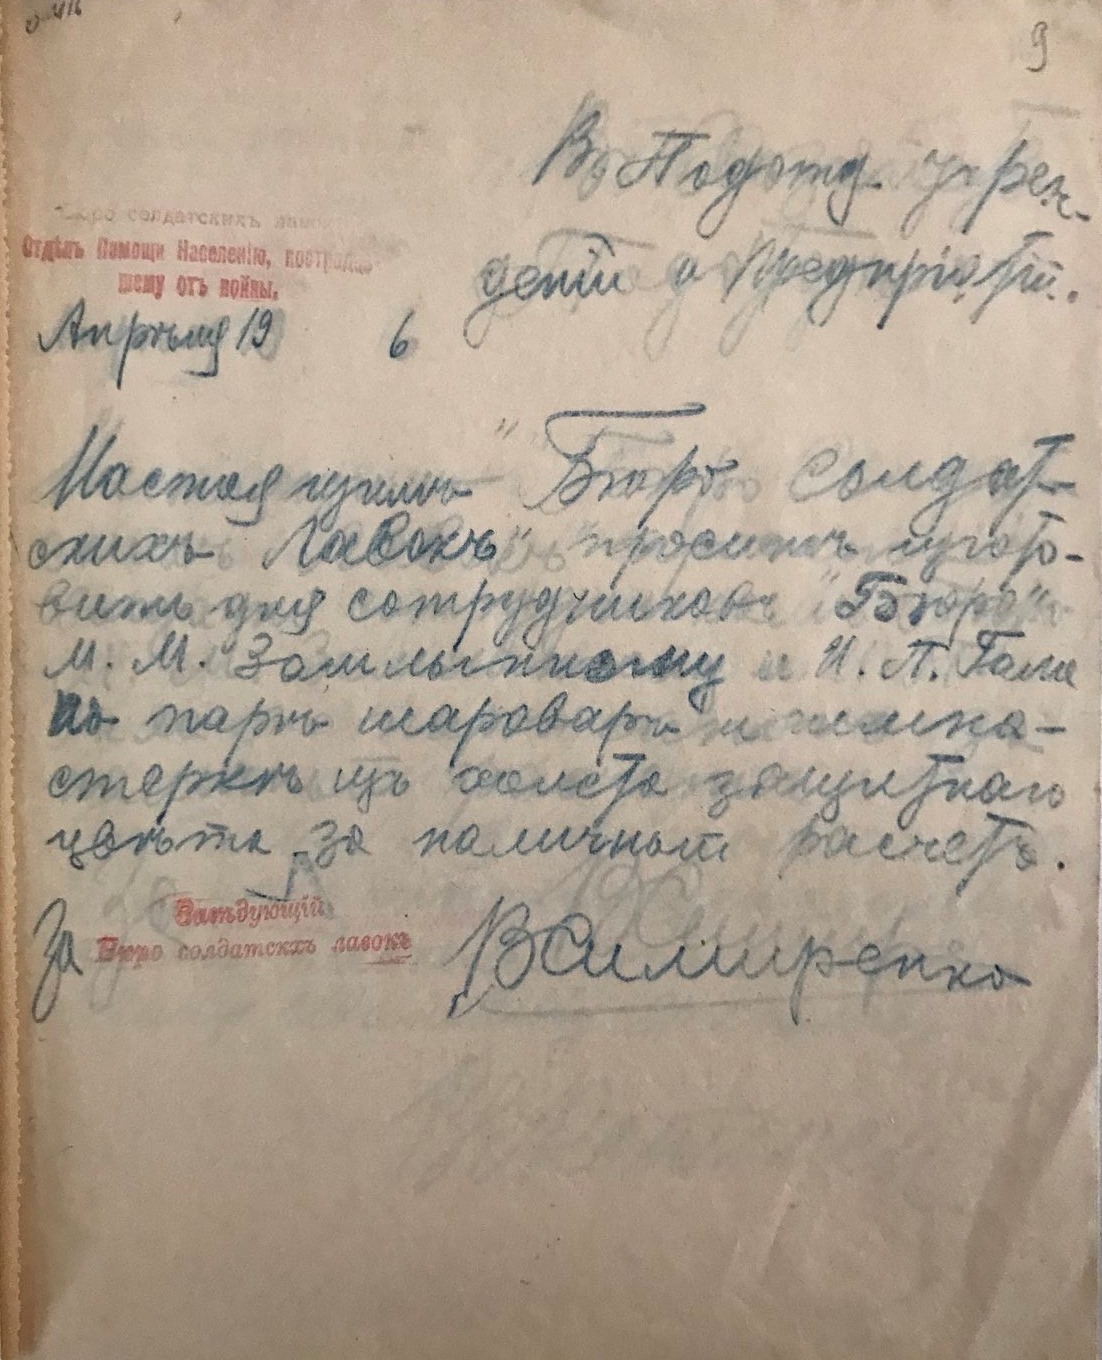 9
Въ Подотд. учреж-
деній и Предпріятій.
Бюро солдатскихъ лавокъ
Отдѣлъ Помощи Населенію, пострадав-
шему отъ войны.
Апрѣля 19 6
Настоящимъ "Бюро Солдат-
скихъ Лавокъ" проситъ изгото-
вить для сотрудниковъ "Бюро"
М. М. и И. П.
по парѣ шароваръ и гимна-
стеркѣ изъ холста защитнаго
цвѣта за наличный расчетъ.
За Завѣдующій
Бюро солдатскхъ лавокъ
ВСимиренко